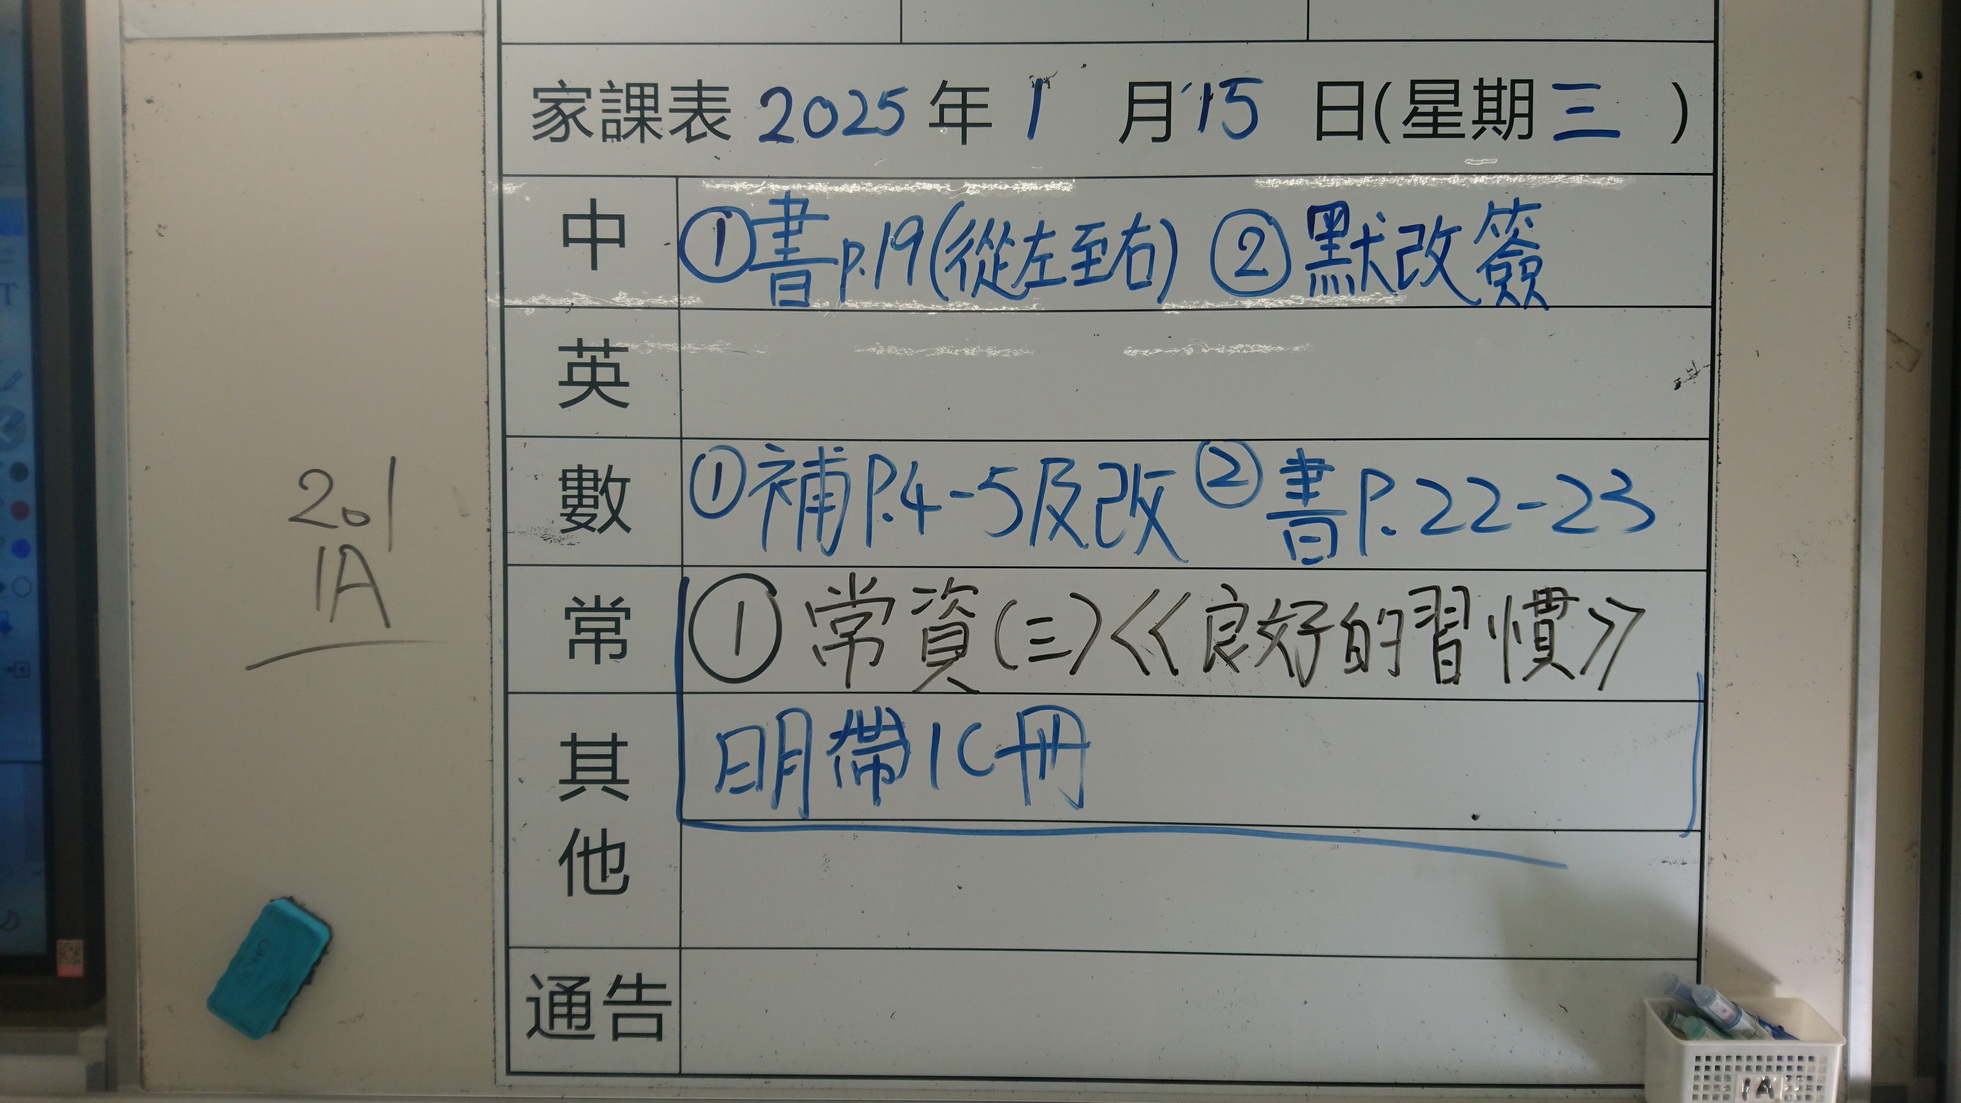 家課表 2025 年 1 月 15 日(星期三)
中 ①書p.19(從左至右) ②默改簽
英
數 ①補P.4-5及改 ②書P.22-23
常 ①常資(三)《良好的習慣》
其他 明帶1C冊
通告
201
1A
1A